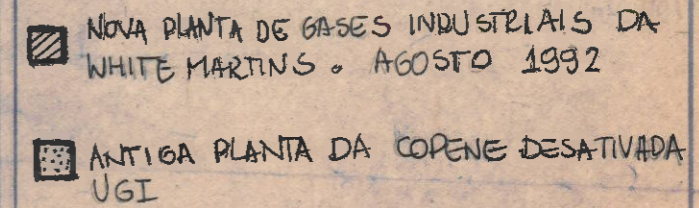 NOVA PLANTA DE GASES INDUSTRIAIS DA
WHITE MARTINS. AGOSTO 1992
ANTIGA PLANTA DA COPENE DESATIVADA
UGI